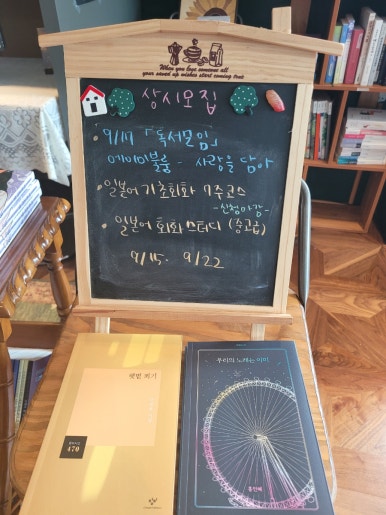 When you love someone all
your saved up wishes start coming true
상시모집
• 9/17 「독서모임」
에이미블룸 - 사랑을 담아
• 일본어 기초회화 7주코스
- 신청마감 -
• 일본어 회화스터디 (중고급)
9/15. 9/22
햇빛 쬐기
창비시선
470
우리의 노래는 이미